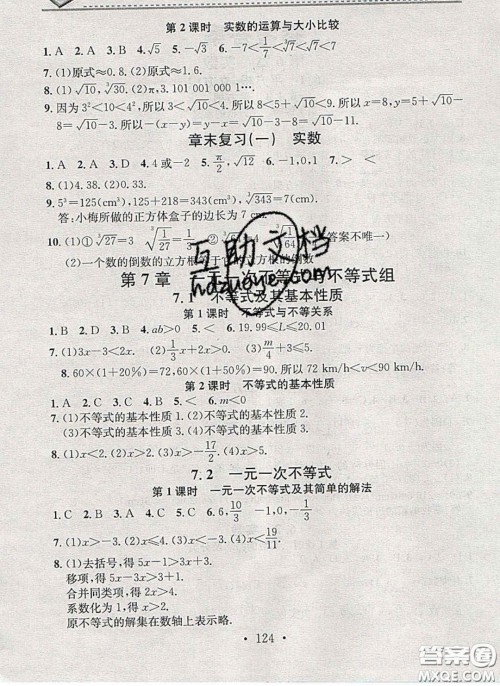 第2课时　实数的运算与大小比较
1. A　2. A　3. B　4. √5　5. -√3　6. -√7<1/√7<√7<7
7. (1)原式≈0.8. (2)原式≈1.7.
8. (1)√10, ∛30. (2)π, 3.101 001 000 1….
9. 因为3²<10<4², 所以3<√10<4. 所以8<5+√10<9. 所以x=8, y=5+√10
-8=√10-3. 所以-(x-y)=y-x=√10-3-8=√10-11.
章末复习(一)　实数
1. A　2. A　3. B　4. 4或-2　5. π/2, √12　6. -1,0,1　7. >　<
8. (1)0.4. (2)0.33.
9. 5³=125(cm³), 125+218=343(cm³), ∛343=7(cm).
答:小梅所做的正方体盒子的边长为7 cm.
10. (1)①∛27=3
答案不唯一)
(2)一个数的倒数的立方根等于它的立方根的倒数
第7章　一元一次不等式与不等式组
7.1　不等式及其基本性质
第1课时　不等式与不等关系
1. B　2. D　3. A　4. ab>0　5. >　6. 19.99≤L≤20.01
7. (1)3x-3<2x. (2)1/3x+2x>0. (3)m/4+3≤3.
8. 60×(1+20%)=72, 60×(1+50%)=90. 所以72 km/h<v<90 km/h.
第2课时　不等式的基本性质
1. A　2. C　3. C　4. B　5. <　6. m<0
7. (1)不等式的基本性质1. (2)不等式的基本性质2.
(3)不等式的基本性质3. (4)不等式的基本性质3.
8. (1)x<2. (2)x>2. (3)x>-17/2. (4)x<5.
7.2　一元一次不等式
第1课时　一元一次不等式及其简单的解法
1. C　2. B　3. B　4. C　5. x>1　6. 10/3　-1,0,1,2,3
7. (1)x>5. (2)x≤-1. (3)x>-4. (4)x<19/11.
8. (1)去括号, 得5x-1>3x+3.
移项, 得5x-3x>3+1.
合并同类项, 得2x>4.
系数化为1, 得x>2.
原不等式的解集在数轴上表示略.
· 124 ·
互助文档
hdzuoye.com
答案圈
MXQE.COM